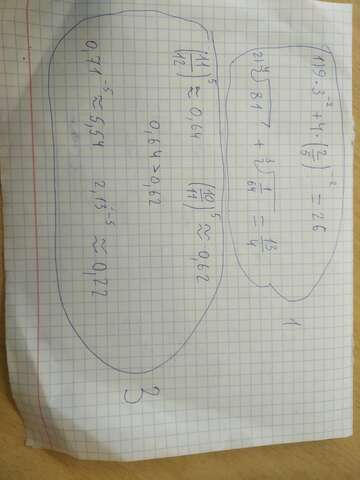 1) 9 · 3⁻² + 4 · (2/5)⁻² = 26
2) ⁴√81 + ³√(1/64) = 13/4
1
(11/12)⁵ ≈ 0,64 (10/11)⁵ ≈ 0,62
0,64 > 0,62
0,71⁻⁵ ≈ 5,54 2,13⁻³ ≈ 0,22
2
3